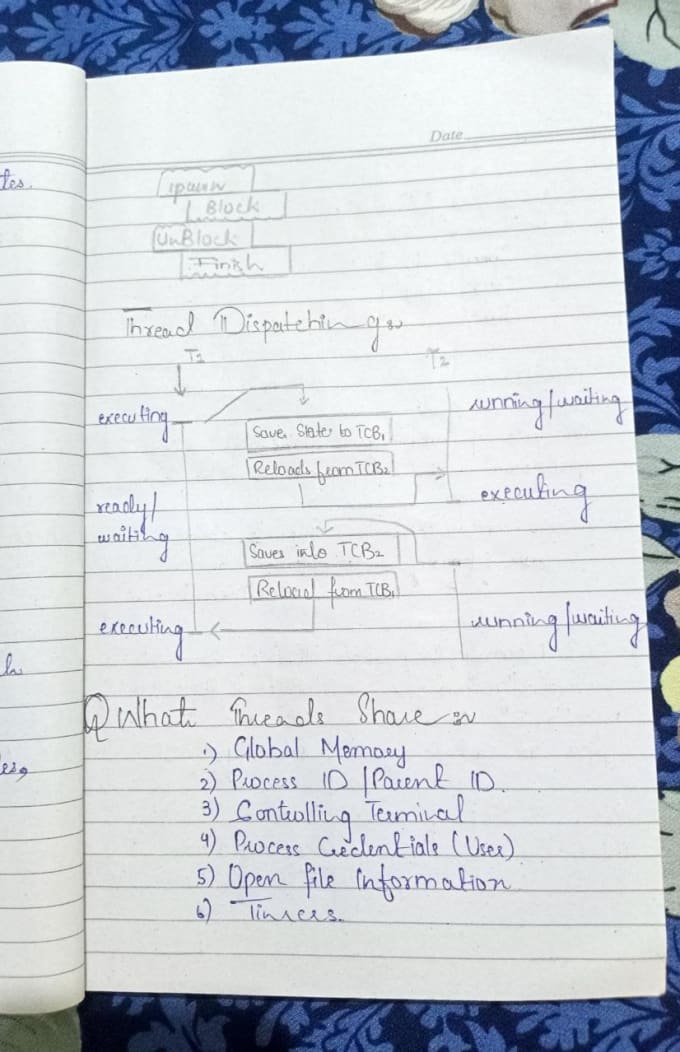 Date
tes.
spawn
Block
UnBlock
Finish
Thread Dispatching
T1
T2
executing
running/waiting
Save State to TCB1
Reloads from TCB2
executing
ready/
waiting
Saves into TCB2
Reload from TCB1
executing
running/waiting
Q What Threads Share
1) Global Memory
2) Process ID/Parent ID.
3) Controlling Terminal
4) Process Credentials (User)
5) Open file Information
6) Timers.